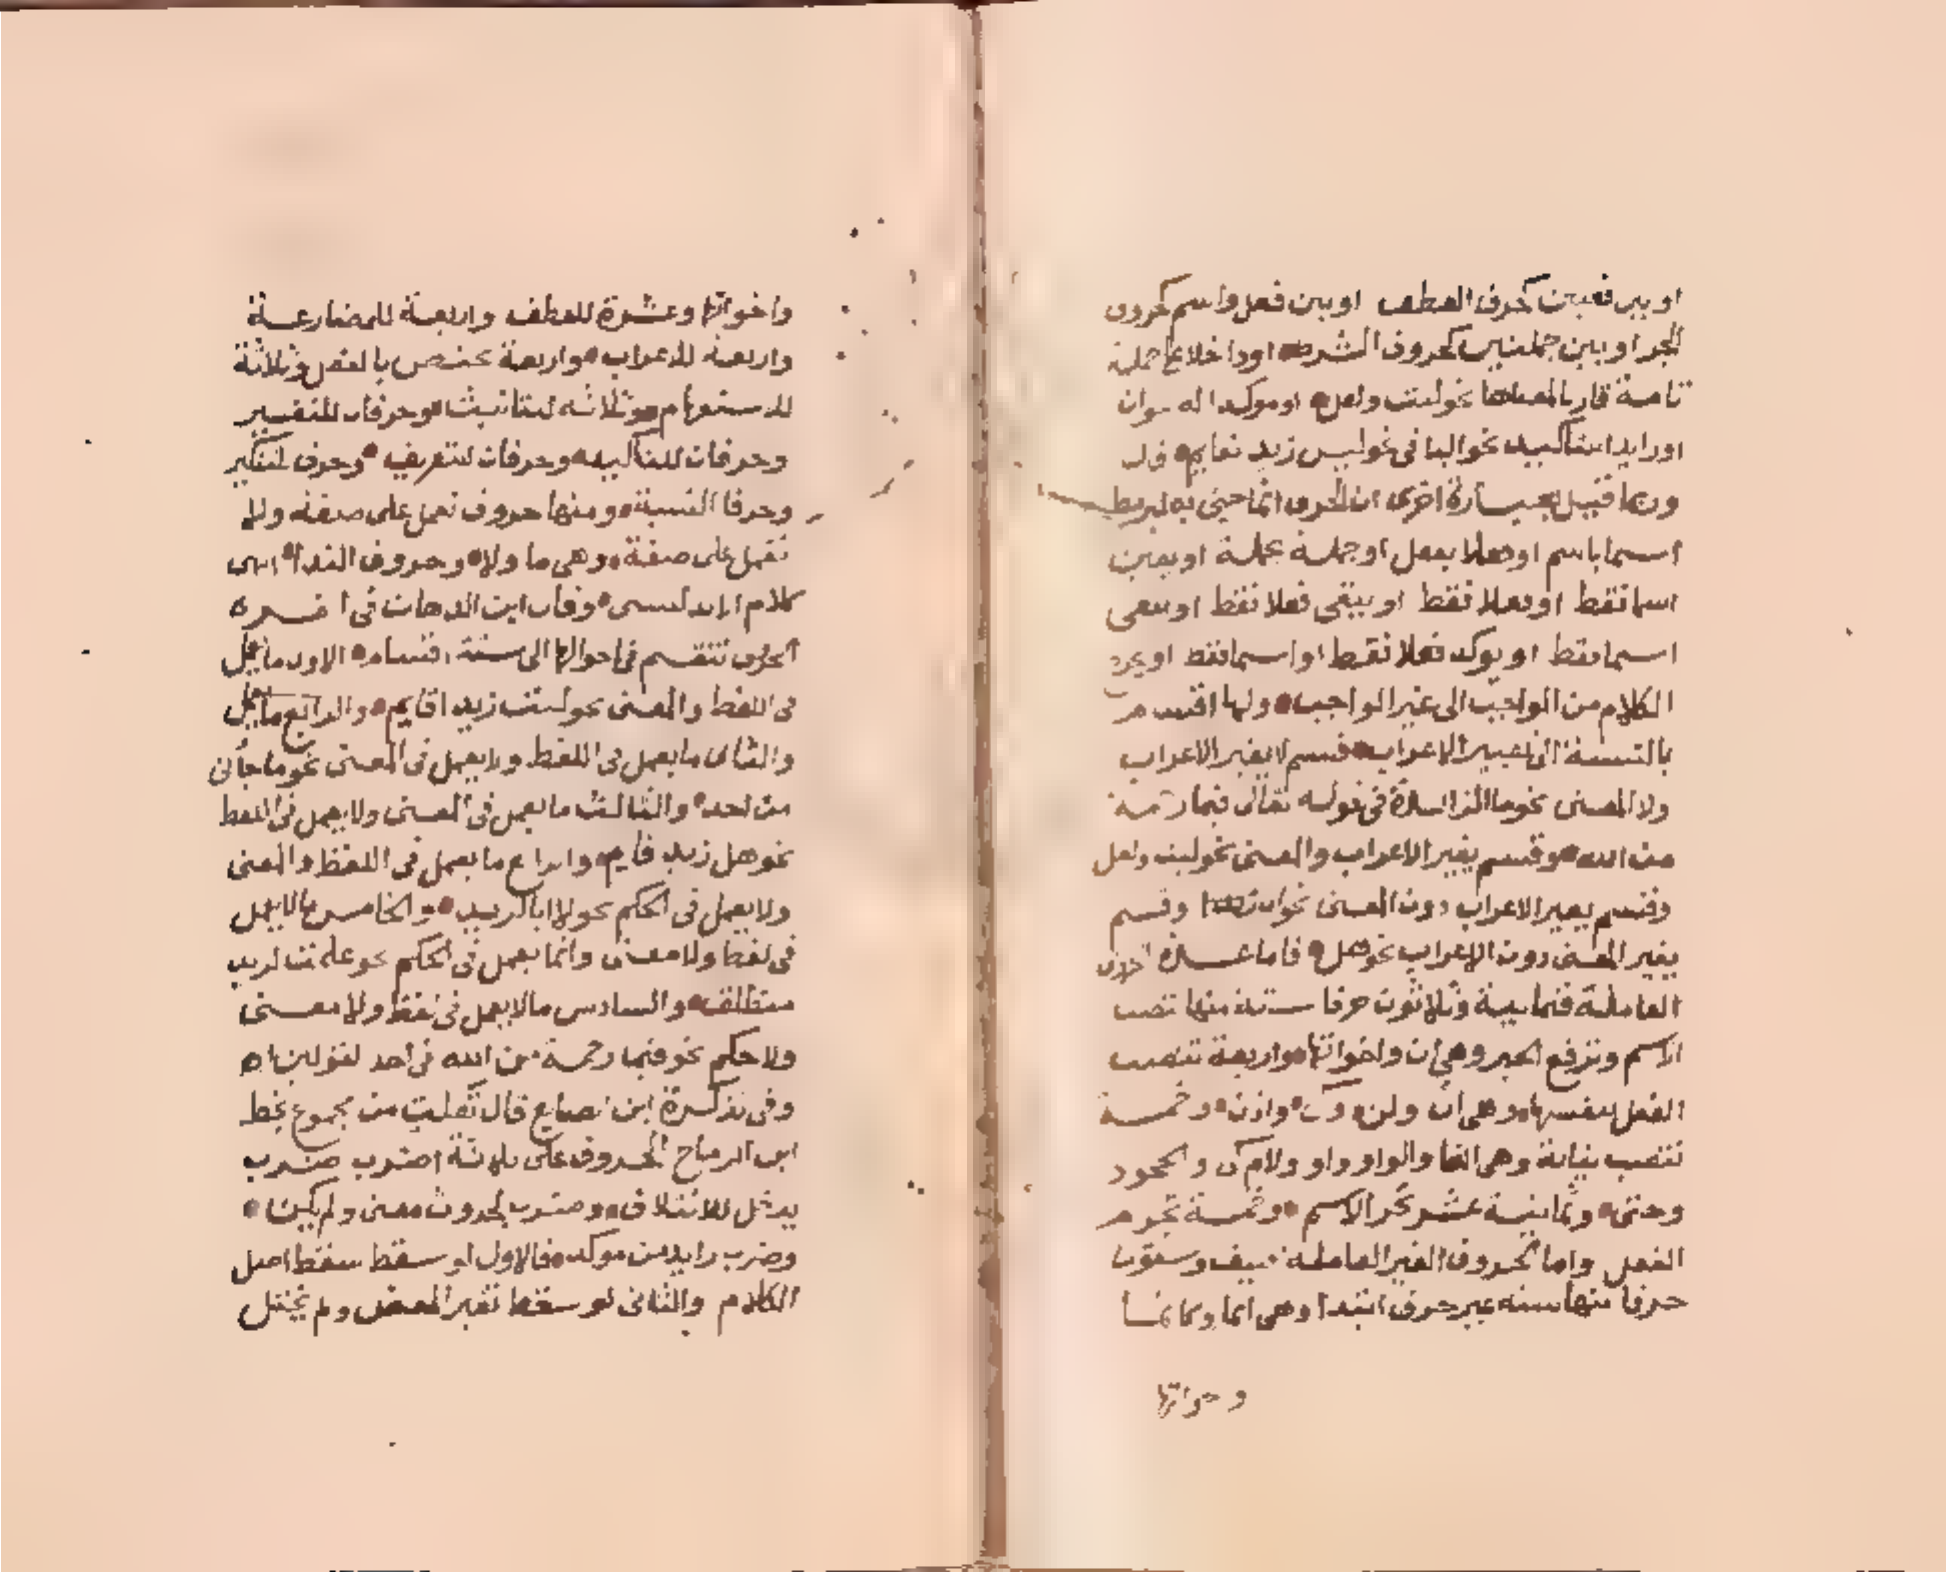 او بين فعلين كحرف العطف او بين فعل واسم كحروف
الجر او بين جملتين كحروف الشرط او داخلا على جملة
تامة قارنا لمعناها نحو ليت ولعل او موكدا له نحو ان
او زايدا للتاكيد نحو البا في نحو ليس زيد بقايم قال
وربما قيل بعبارة اخرى ان الحرف انما جي به ليربط
اسما باسم او فعلا بفعل او جملة بجملة او يعين
اسما فقط او فعلا فقط او ينفي فعلا فقط او ينفي
اسما فقط او يوكد فعلا فقط او اسما فقط او يخرج
الكلام من الواجب الى غير الواجب ولها اقسام
بالنسبة الى تغيير الاعراب فقسم لا يغير الاعراب
ولا المعنى نحو ما الزايدة في قوله تعالى فبما رحمة
من الله وقسم يغير الاعراب والمعنى نحو ليت ولعل
وقسم يغير الاعراب دون المعنى نحو ان وقسم
يغير المعنى دون الاعراب نحو هل فاما عدة الحروف
العاملة فثمانية وثلاثون حرفا ستة منها تنصب
الاسم وترفع الخبر وهي ان واخواتها واربعة تنصب
الفعل بنفسها وهي ان ولن وكي واذن وخمسة
تنصب نيابة وهي الفا والواو واو ولام كي والجحود
وحتى وثمانية عشر تجر الاسم وخمسة تجزم
الفعل واما الحروف الغير العاملة فنيف وستون
حرفا منها ستة غير حرف ابتدا وهي انما وكانما
واخواتها
واخواتها وعشرة للعطف واربعة للمضارعة
واربعة للاعراب واربعة تختص بالفعل وثلاثة
للاستفهام وثلاثة للتانيث وحرفان للتفسير
وحرفان للتاكيد وحرفان للتعريف وحرف للتنكير
وحرفا النسبة ومنها حروف تعمل على صفة ولا
تعمل على صفة وهي ما ولا وحروف الندا انتهى
كلام الاندلسي وقال ابن الدهان في الغرة
الحرف تنقسم في احوالها الى ستة اقسام الاول ما يعمل
في اللفظ والمعنى نحو ليت زيدا قايم والرابع ما يعمل
والثاني ما يعمل في اللفظ ولا يعمل في المعنى نحو ما جاني
من احد والثالث ما يعمل في المعنى ولا يعمل في اللفظ
نحو هل زيد قايم والرابع ما يعمل في اللفظ والمعنى
ولا يعمل في الحكم نحو لا ابا لزيد والخامس ما لا يعمل
في لفظ ولا معنى وانما يعمل في الحكم نحو علمت لزيد
منطلق والسادس ما لا يعمل في لفظ ولا معنى
ولا حكم نحو فبما رحمة من الله في احد القولين اه
وفي تذكرة ابن الصايغ قال نقلت من مجموع بخط
ابن الرماح الحروف على ثلاثة اضرب ضرب
يدخل للائتلاف وضرب لحدوث معنى ولم يكن
وضرب زايد من موكد فالاول لو سقط سقط اصل
الكلام والثاني لو سقط تغير المعنى ولم يختل